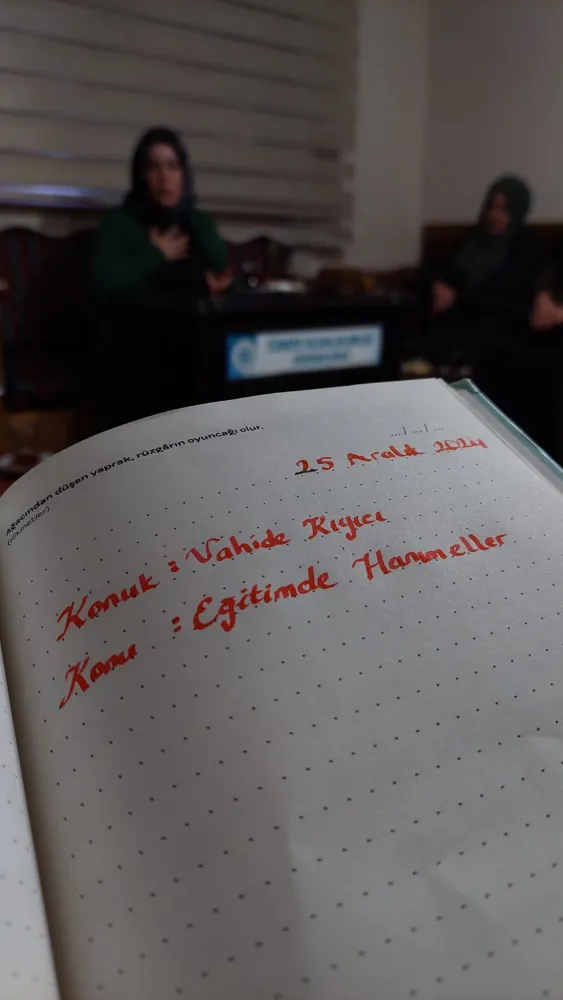 Ağacından düşen yaprak, rüzgârın oyuncağı olur.
(Hikmetler)
.../.../...
25 Aralık 2024
Konuk : Vahide Kıyıcı
Konu : Eğitimde Hammeller